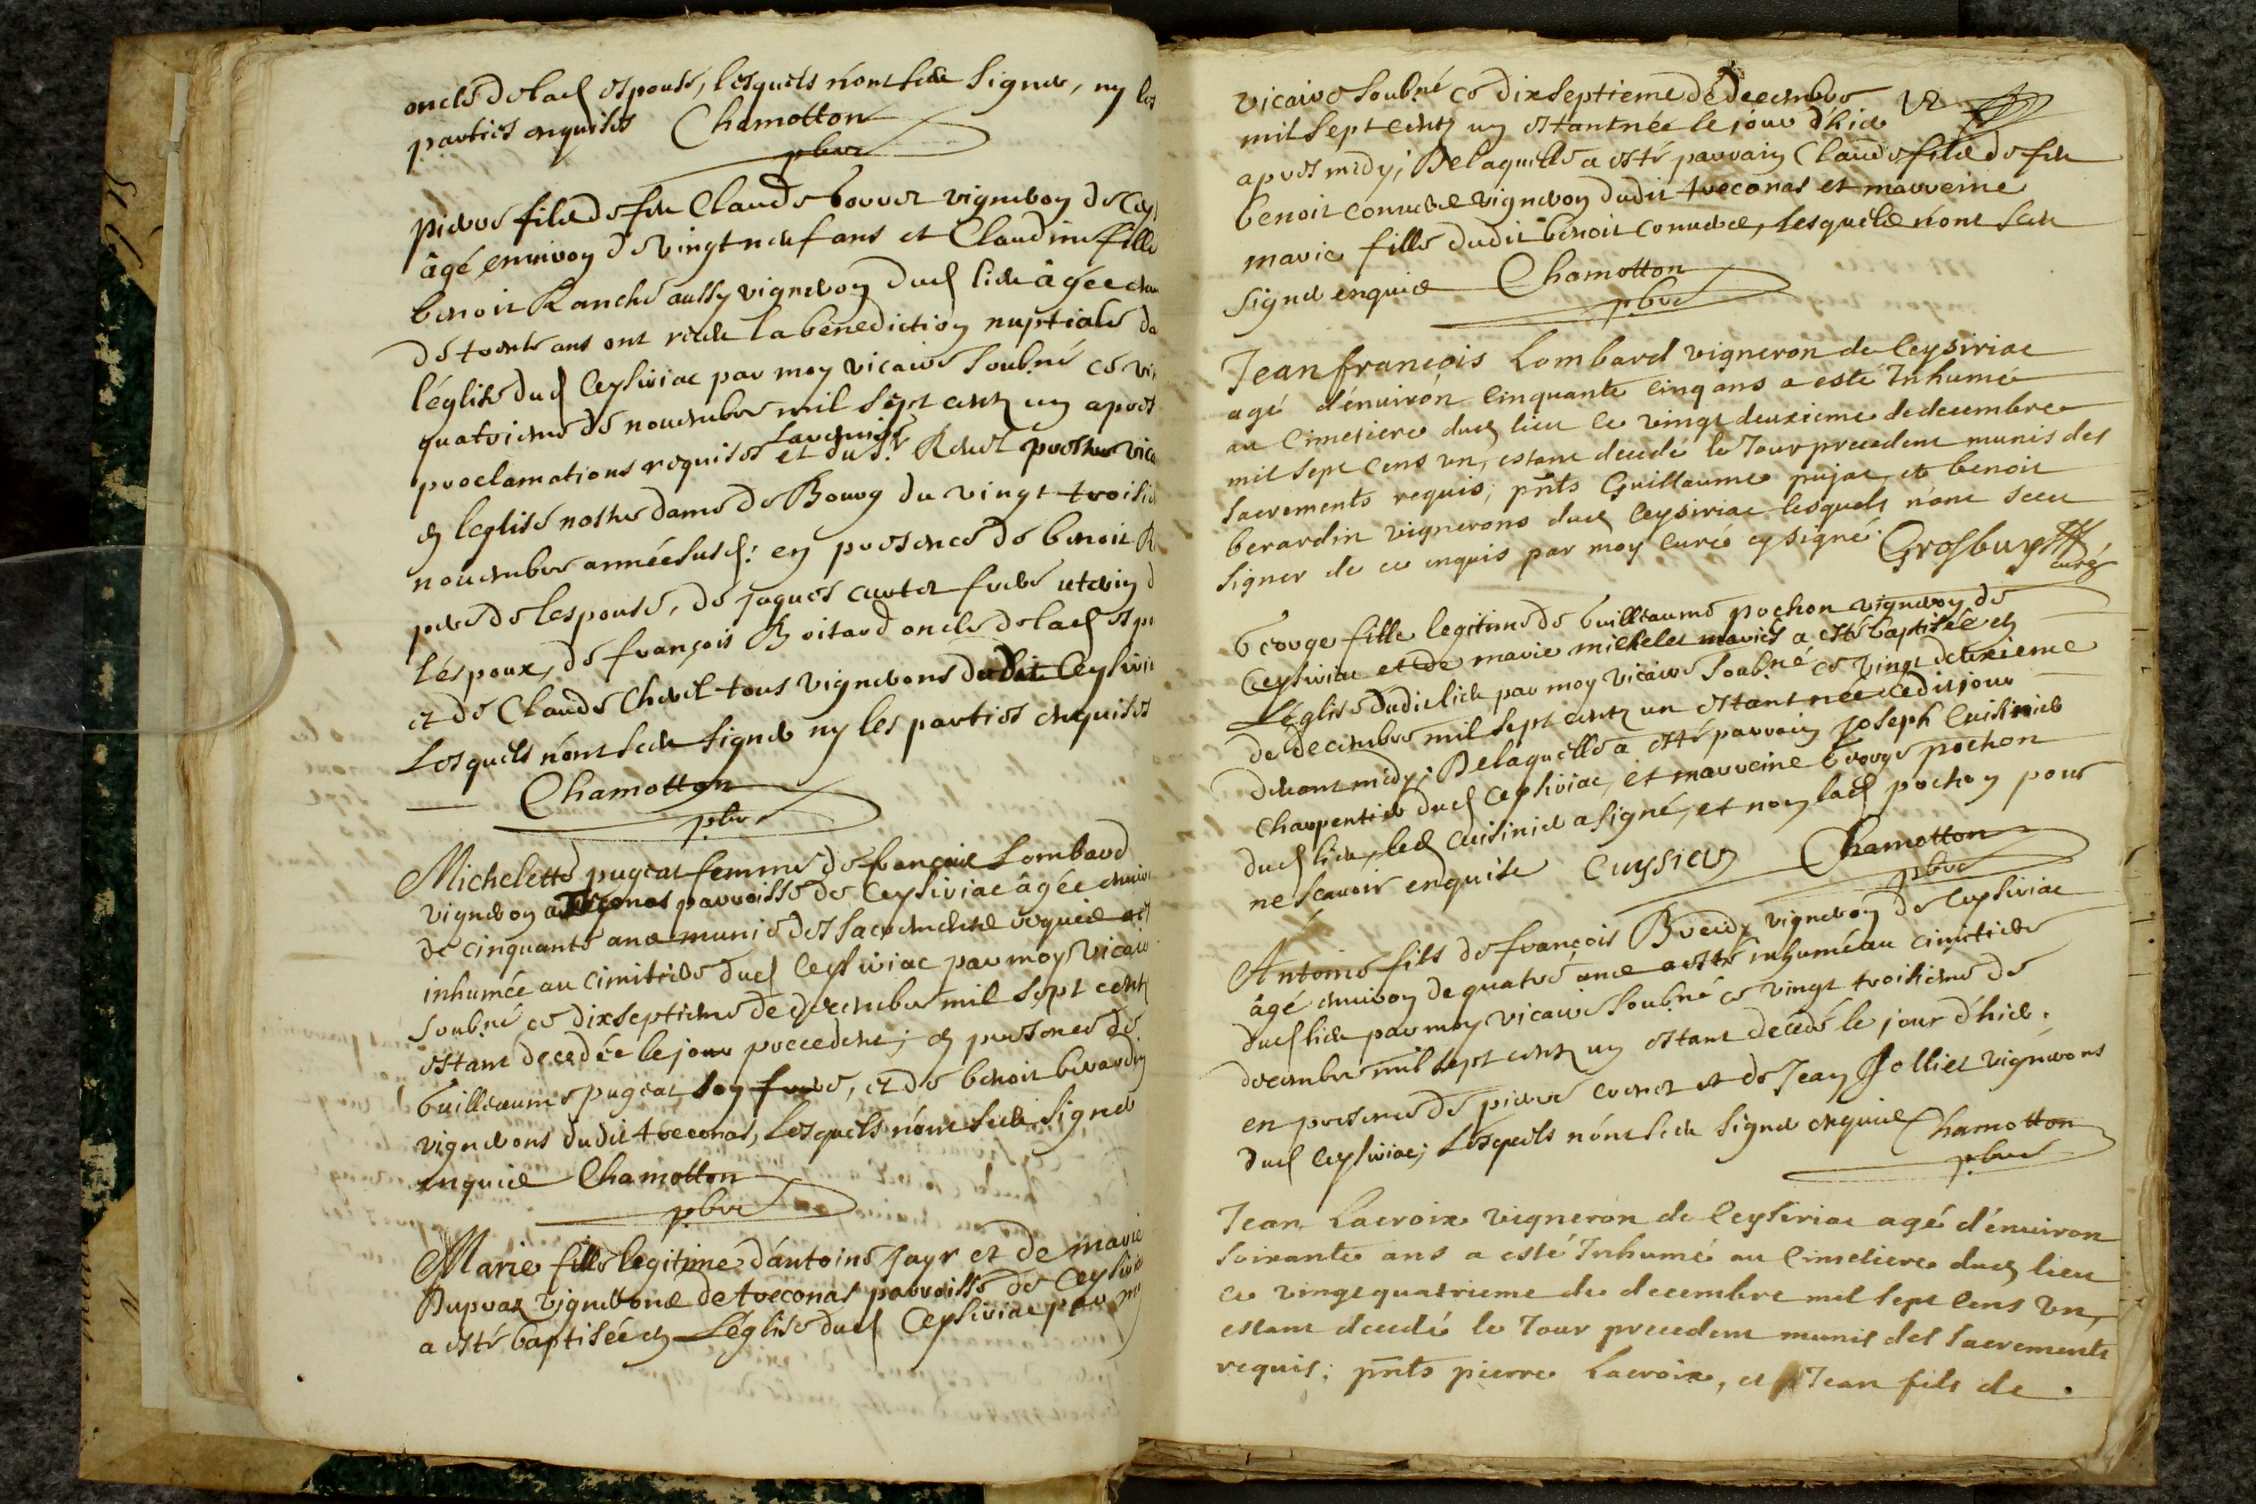 oncle de lad espouse, lesquels n'ont sceu signer, ny les
parties enquises Chamotton
pbre
pierre fils de feu Claude borret vigneron de Cey
âgé environ de vingt neuf ans et Claudine fille
benoit Ranche aussy vigneron dud lieu âgée
de trente ans ont receu la benediction nuptiale da
l'église dud Ceysiriac par moy vicaire soubné ce vi
quatrieme de novembre mil sept centz un apres
proclamations requises et du Sr vic
en leglise nostre dame de Bourg du vingt troisie
novembre année susd: en presence de benoit R
pere de lespouse, de jaques cartet frere uterin d
l'époux, de françois Boitard oncle de lad esp
et de Claude Chevel tous vignerons dudit Ceysiria
Lesquels n'ont sceu signer ny les parties enquises
Chamotton
pbre
Michelette pugeat femme de françois Lombard
vigneron a treconas parroisse de Ceysiriac âgée envir
de cinquante ans munie des sacrements requis a est
inhumée au cimitiere dud Ceysiriac par moy vicair
soubné ce dixseptieme de decembre mil sept centz
estant decedée le jour precedent; en presence de
Guilleaume pugeat son frere, et de benoit berardin
vignerons dudit treconas, Lesquels n'ont sceu signer
enquis Chamotton
pbre
Marie fille legitime d'antoine Jayr et de marie
Dupraz vignerons de treconas parroisse de Ceysiria
a esté baptisée en L'église dud Ceysiriac par moy
vicaire soubné ce dixseptieme de decembre
mil sept centz un estant née le jour d'hier
apres midy; De laquelle a esté parrain Claude fils de feu
benoit vigneron dudit treconas et marreine
marie fille dudit benoit, lesquels n'ont sceu
signer enquis Chamotton
pbre
Jean françois Lombard vigneron de Ceysiriac
agé d'énuirón Cinquante Cinq ans a esté Inhumé
au Cimetiere dud lieu Ce vingt deuxieme de decembre
mil sept Cens vn, estant decedé le Jour precedent munis des
sacrements requis; pnts Guillaume pujat, et benoit
berardin vignerons dud Ceysiriac lesquels n'ont sceu
signer de ce enquis par moy Curé cy signé. Grosbuys
curé
George fille legitime de Guilleaume pochon vigneron de
Ceysiriac et de marie michelet mariés a esté baptisée en
L'église dudit lieu par moy vicaire soubné ce vingt deuxieme
de decembre mil sept centz un estant née cedit jour
devant midy; De laquelle a esté parrain Joseph Cuisinier
charpentier dud Ceysiriac, et marreine George pochon
dud lieu, led cuisinier a signé, et non lad pochon pour
ne scavoir enquise Chamotton
pbre
Antoine fils de françois vigneron de Ceysiriac
âgé environ de quatre ans a esté inhumé au cimitiere
dud lieu par moy vicaire soubné ce vingt troisieme de
decembre mil sept centz un estant decedé le jour d'hier.
en presence de pierre et de Jean Jolliet vignerons
dud Ceysiriac; Lesquels n'ont sceu signer enquis Chamotton
pbre
Jean Lacroix vigneron de Ceysiriac agé d'énuiron
soixante ans a esté Inhumé au Cimetiere dud lieu
Ce vingt quatrieme de decembre mil sept Cens vn,
estant decedé le Jour precedent munis des sacrements
requis; pnts pierre Lacroix, et Jean fils de